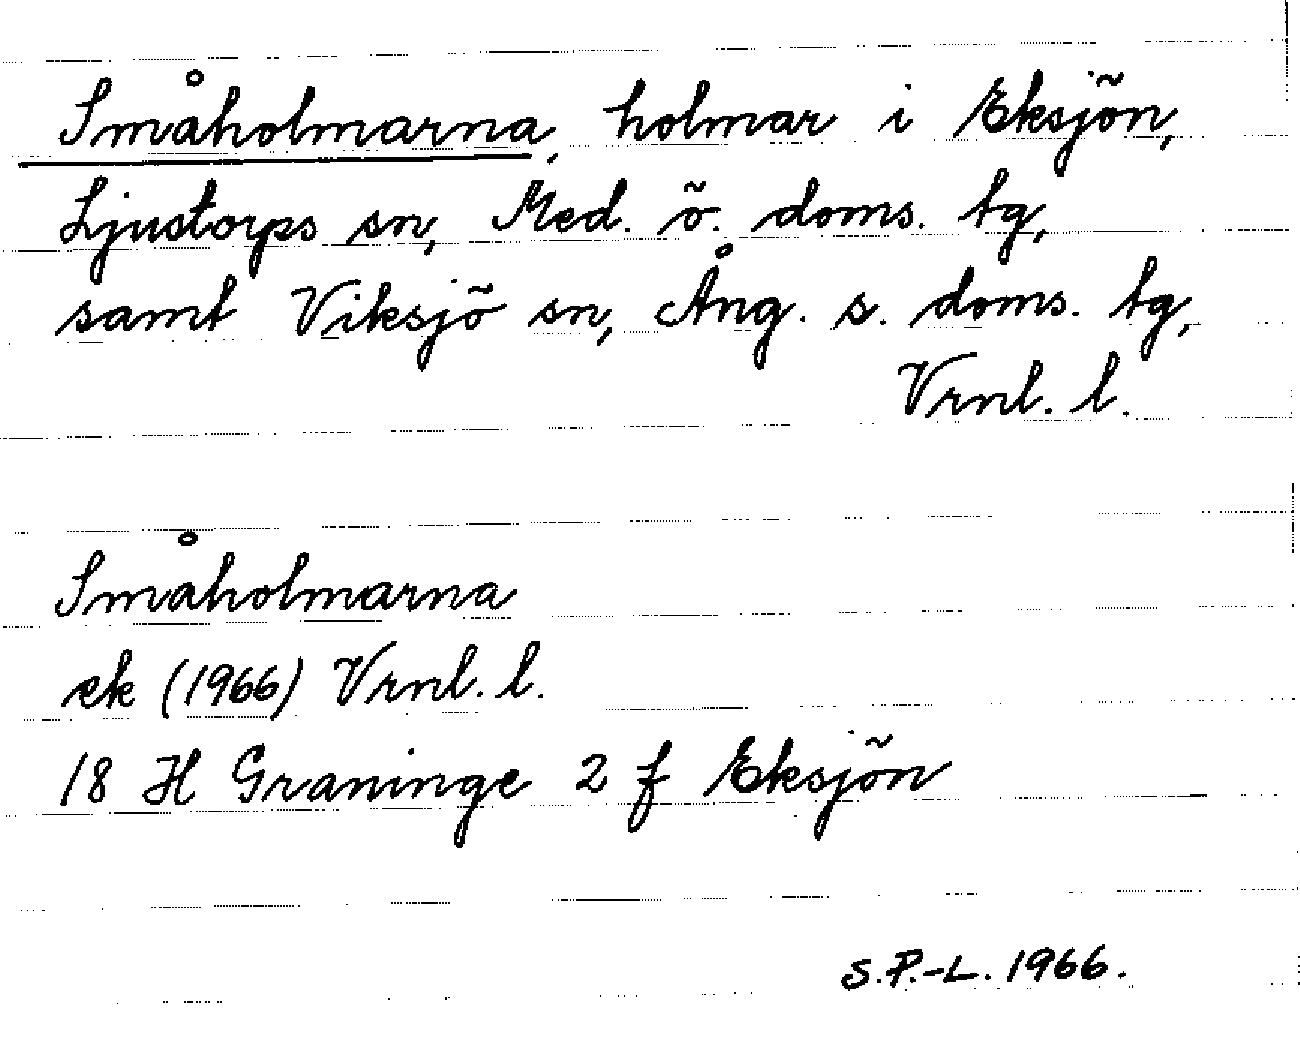 Småholmarna, holmar i Eksjön,
Ljustorps sn, Med. ö. doms. tg,
samt Viksjö sn, Ång. s. doms. tg,
Vrnl. l.
Småholmarna
ek (1966) Vrnl. l.
18 H Graninge 2 f Eksjön
S.P.-L. 1966.